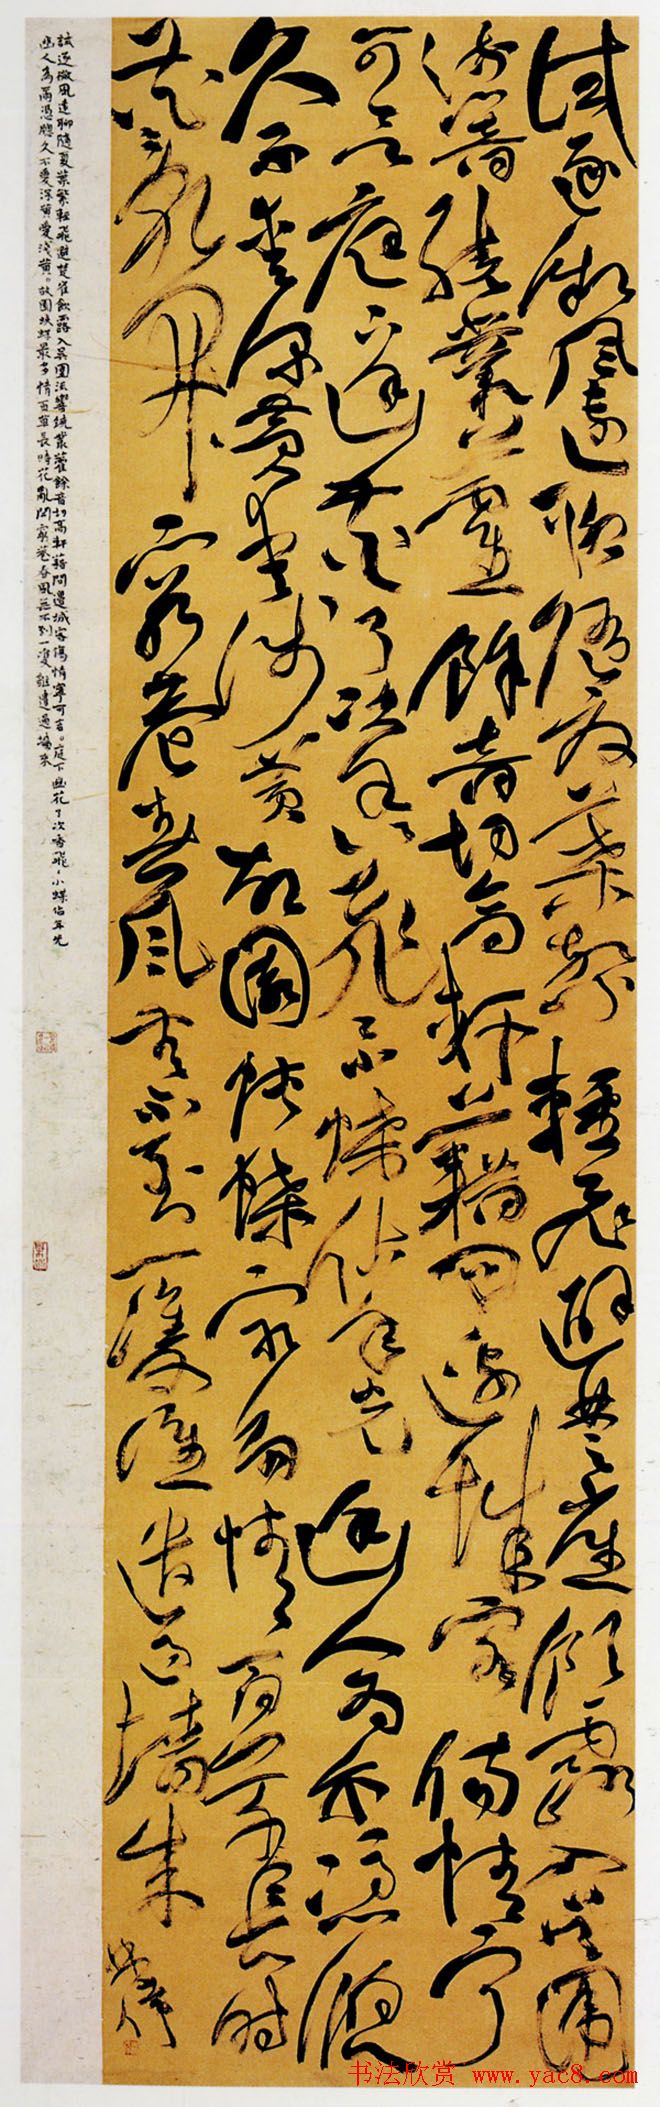 試逐微風遠聊隨夏葉繁輕飛避楚雀飲露入吳園
流響繞叢藿餘音切高軒藉問邊城客傷情寧
可言庭下幽花了次香飛〻小蝶佔年光幽人為爾憑牕
久不愛深黃愛淺黃故園蛺蝶最多情百草長時
花亂開窮巷春風無不到一雙誰遣過墻來
試逐微風遠聊隨夏葉繁輕飛避楚雀飲露入吳園流響繞叢藿餘音切高軒藉問邊城客傷情寧可言。庭下幽花了次香飛〻小蝶佔年光
幽人為爾憑牕久不愛深黃愛淺黃。故園蛺蝶最多情百草長時花亂開窮巷春風無不到一雙誰遣過墻來
书法欣赏 www.yac8.com